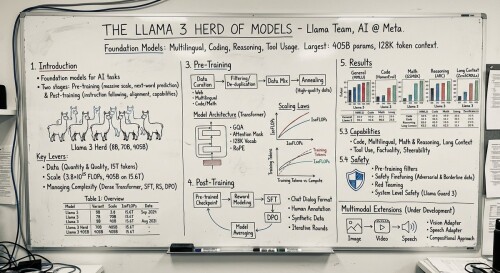 THE LLAMA 3 HERD OF MODELS - Llama Team, AI @ Meta.
Foundation Models: Multilingual, Coding, Reasoning, Tool Usage. Largest: 405B params, 128K token context.
1. Introduction
• Foundation models for AI tasks
• Two stages: Pre-training (massive scale, next-word prediction)
& Post-training (instruction following, alignment, capabilities)
Llama 3 Herd (8B, 70B, 405B)
Key Levers:
• Data (Quantity & Quality, 15T tokens)
• Scale (3.8×10²⁵ FLOPs, 405B on 15.6T)
• Managing Complexity (Dense Transformer, SFT, RS, DPO)
Table 1: Overview
3. Pre-Training
Data Curation
Filtering/ De-duplication
Data Mix
Annealing
(High-quality data)
• Web
• Multilingual
• Code/Math
Model Architecture (Transformer)
- GQA
- Attention Mask
- 128K Vocab
- RoPE
Scaling Laws
Training Tokens vs Compute
4. Post-Training
Pre-trained Checkpoint
Reward Modeling
SFT
DPO
Model Averaging
• Chat Dialog Format
• Human Annotation
• Synthetic Data
• Iterative Rounds
5. Results
General (MMLU)
Code (HumanEval)
Math (GSM8K)
Reasoning (ARC)
Long Context
5.3 Capabilities
• Code, Multilingual, Math & Reasoning, Long Context
• Tool Use, Factuality, Steerability
5.4 Safety
• Pre-training filters
• Safety Finetuning (Adversarial & Borderline data)
• Red Teaming
• System Level Safety (Llama Guard 3)
Multimodal Extensions (Under Development)
Image
Video
Speech
• Vision Adapter
• Speech Adapter
• Compositional Approach